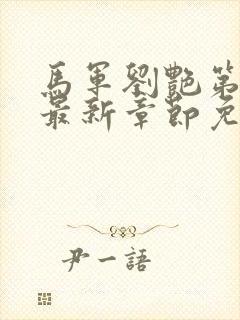 馬軍劉艷第
最新章節免
尹一語